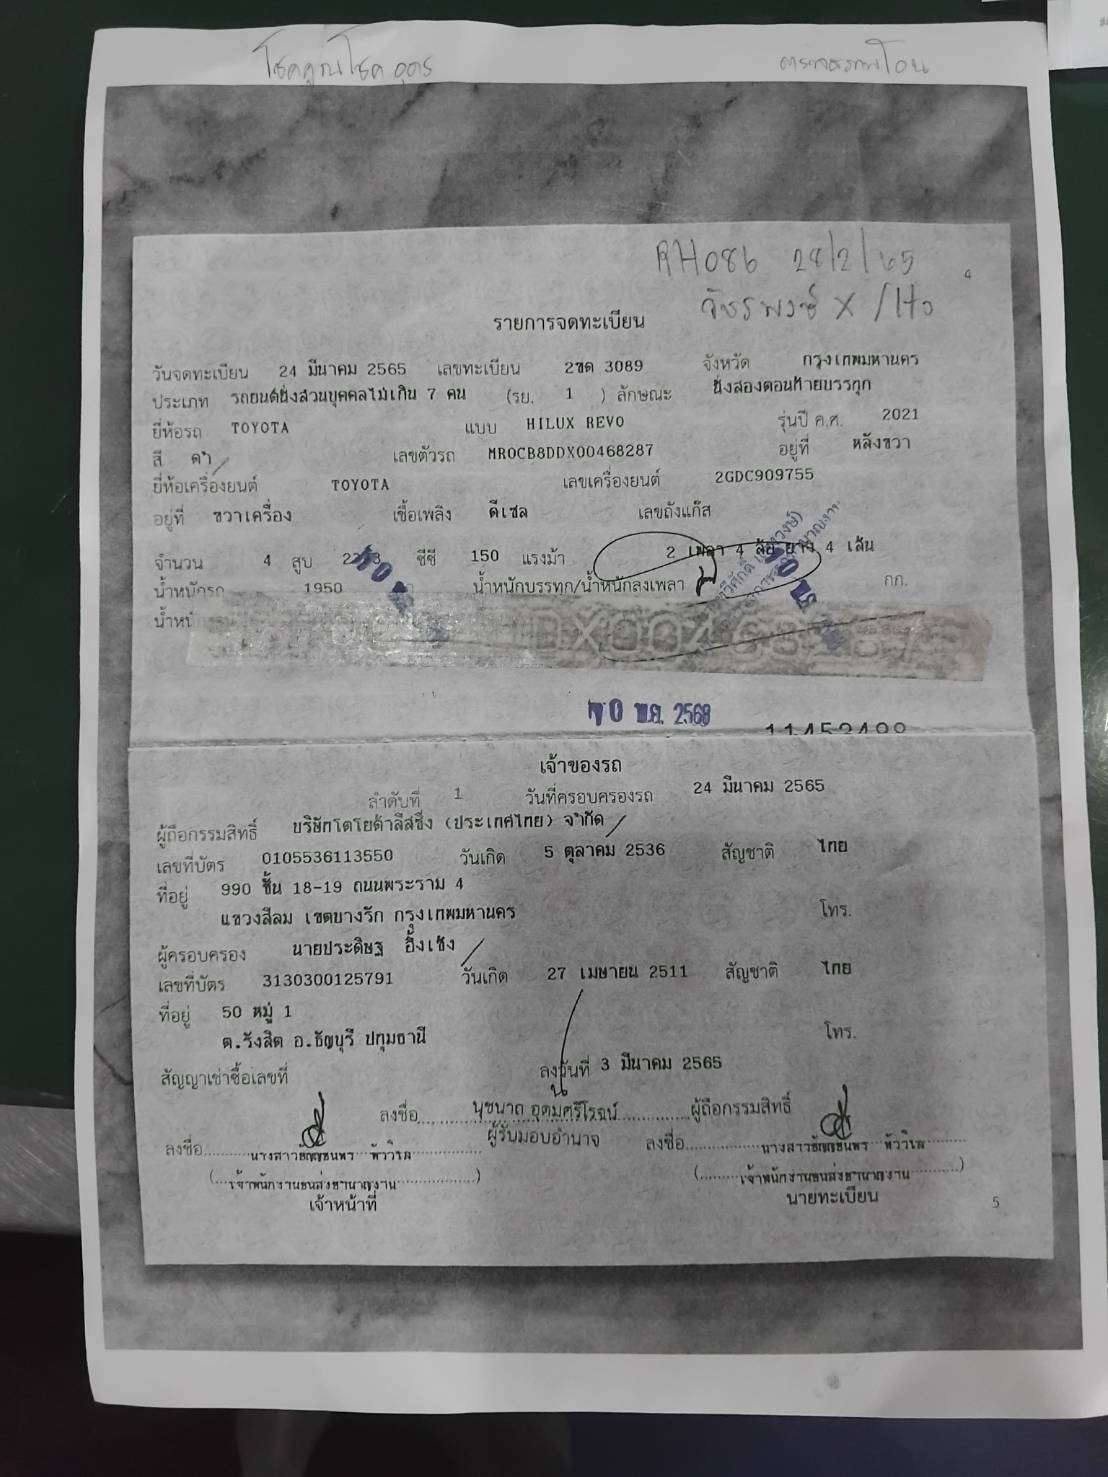 โชคคูณโชค อุดร
RH086 28/2/65
4
รายการจดทะเบียน
วันจดทะเบียน 24 มีนาคม 2565 เลขทะเบียน 2ขด 3089 จังหวัด กรุงเทพมหานคร
ประเภท รถยนต์นั่งส่วนบุคคลไม่เกิน 7 คน (รย. 1 ) ลักษณะ นั่งสองตอนท้ายบรรทุก
ยี่ห้อรถ TOYOTA แบบ HILUX REVO รุ่นปี ค.ศ. 2021
สี ดำ เลขตัวรถ MR0CB8DDX00468287 อยู่ที่ หลังขวา
ยี่ห้อเครื่องยนต์ TOYOTA เลขเครื่องยนต์ 2GDC909755
อยู่ที่ ขวาเครื่อง เชื้อเพลิง ดีเซล เลขถังแก๊ส
จำนวน 4 สูบ ซีซี 150 แรงม้า 2 เพลา 4 ล้อ ยาง 4 เส้น
น้ำหนักรถ 1950 น้ำหนักบรรทุก/น้ำหนักลงเพลา กก.
พ.ย. 2568
เจ้าของรถ
ลำดับที่ 1 วันที่ครอบครองรถ 24 มีนาคม 2565
ผู้ถือกรรมสิทธิ์ บริษัทโตโยต้าลีสซิ่ง (ประเทศไทย) จำกัด
เลขที่บัตร 0105536113550 วันเกิด 5 ตุลาคม 2536 สัญชาติ ไทย
ที่อยู่ 990 ชั้น 18-19 ถนนพระราม 4
แขวงสีลม เขตบางรัก กรุงเทพมหานคร โทร.
ผู้ครอบครอง นายประดิษฐ ฮึ้งเช้ง
เลขที่บัตร 3130300125791 วันเกิด 27 เมษายน 2511 สัญชาติ ไทย
ที่อยู่ 50 หมู่ 1
ต.รังสิต อ.ธัญบุรี ปทุมธานี โทร.
สัญญาเช่าซื้อเลขที่ ลงวันที่ 3 มีนาคม 2565
ลงชื่อ นุชนาถ อุดมศรีโรจน์ ผู้ถือกรรมสิทธิ์
ผู้รับมอบอำนาจ
ลงชื่อ นางสาวธัญชนพร หัววิเล ลงชื่อ นางสาวธัญชนพร หัววิเล
(เจ้าพนักงานขนส่งชำนาญงาน) (เจ้าพนักงานขนส่งชำนาญงาน)
เจ้าหน้าที่ นายทะเบียน
5